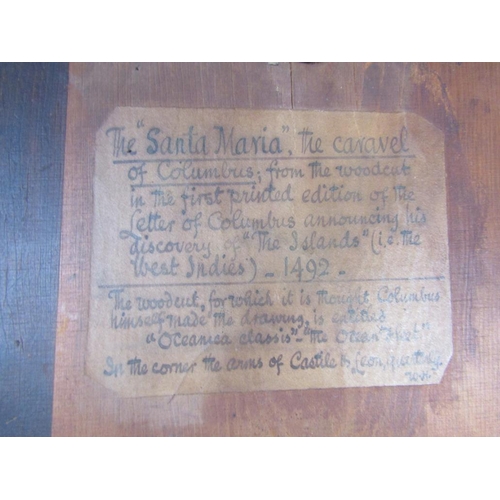 The "Santa Maria", the caravel
of Columbus; from the woodcut
in the first printed edition of the
Letter of Columbus announcing his
discovery of "The Islands" (i.e. the
West Indies) - 1492 -
The woodcut, for which it is thought Columbus
himself made the drawing, is entitled
"Oceanica classis" - "the Ocean
In the corner the arms of Castile & Leon,